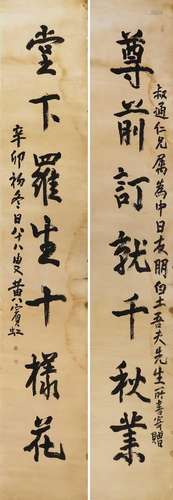 尊前訂就千秋業
叔通仁兄属為中日友朋白土吾夫先生一所書寄贈
堂下羅生十樣花
辛卯初冬日八十八叟黄賓虹